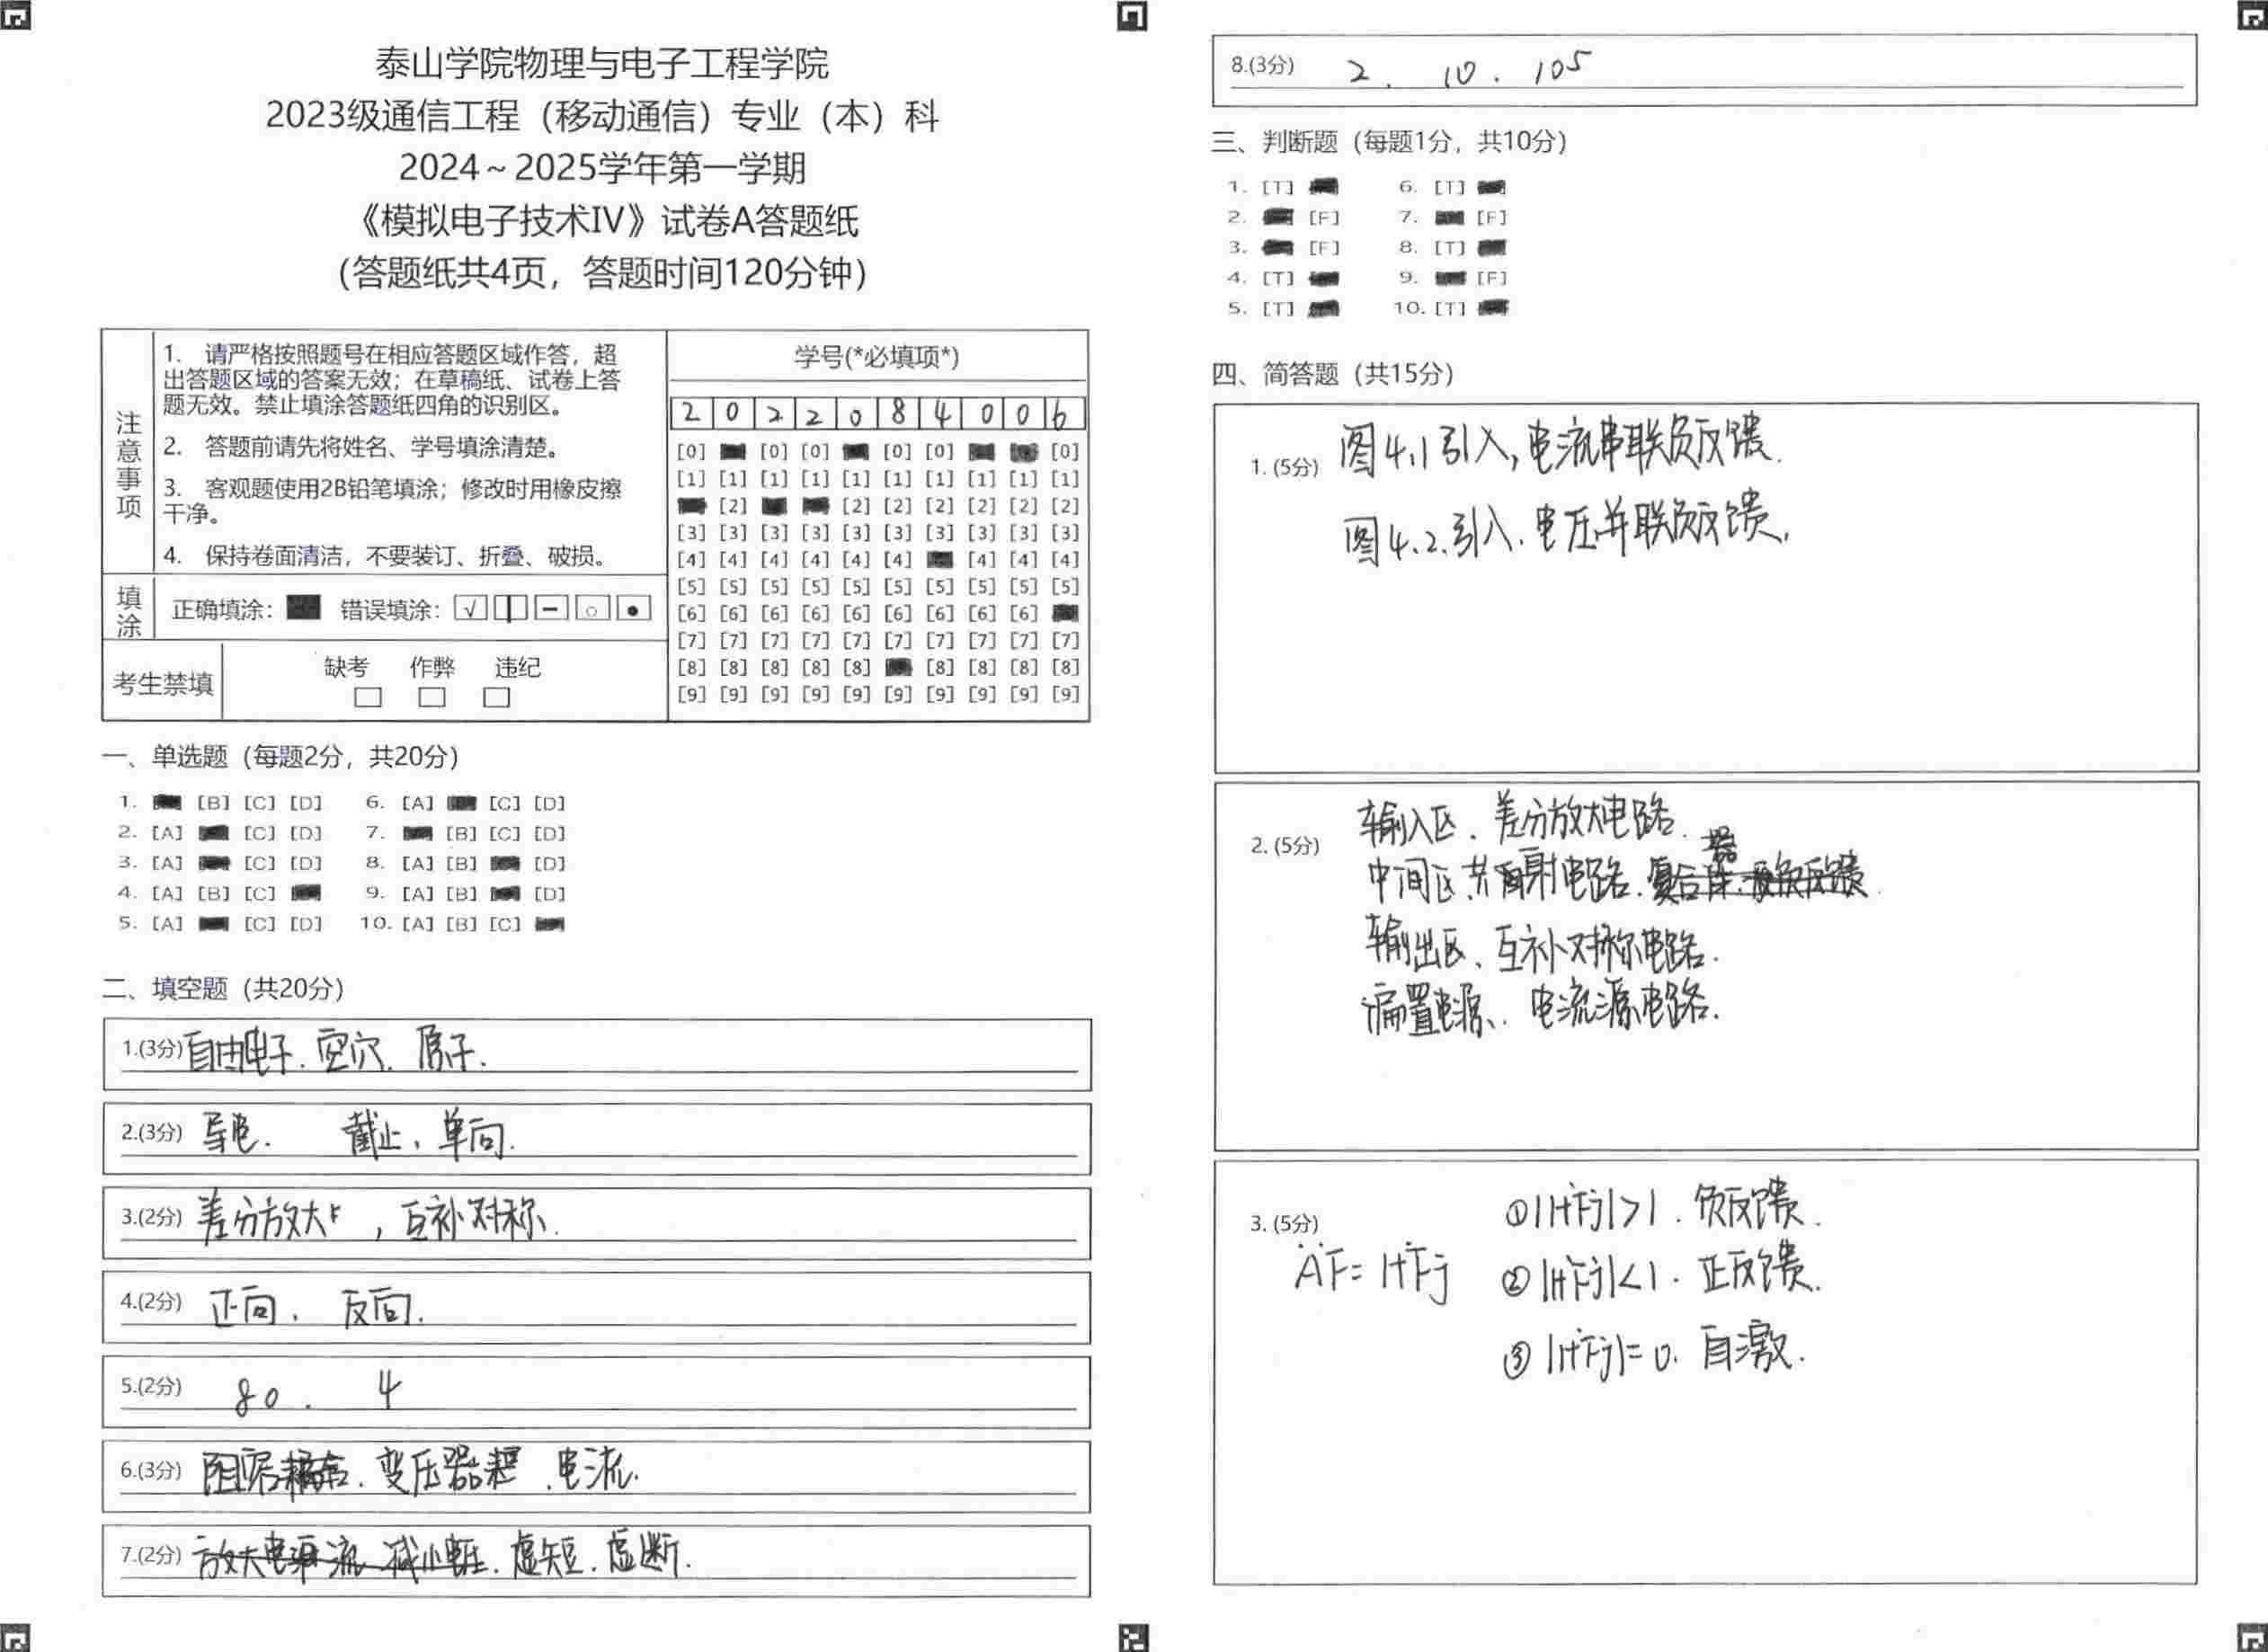 泰山学院物理与电子工程学院
2023级通信工程（移动通信）专业（本）科
2024～2025学年第一学期
《模拟电子技术IV》试卷A答题纸
（答题纸共4页，答题时间120分钟）
注意事项
1. 请严格按照题号在相应答题区域作答，超
出答题区域的答案无效；在草稿纸、试卷上答
题无效。禁止填涂答题纸四角的识别区。
2. 答题前请先将姓名、学号填涂清楚。
3. 客观题使用2B铅笔填涂；修改时用橡皮擦
干净。
4. 保持卷面清洁，不要装订、折叠、破损。
填涂 正确填涂： 错误填涂： √
考生禁填 缺考 作弊 违纪
学号(*必填项*)
2 0 2 2 0 8 4 0 0 6
[0] [0] [0] [0] [0] [0]
[1] [1] [1] [1] [1] [1] [1] [1] [1] [1]
[2] [2] [2] [2] [2] [2] [2]
[3] [3] [3] [3] [3] [3] [3] [3] [3] [3]
[4] [4] [4] [4] [4] [4] [4] [4] [4]
[5] [5] [5] [5] [5] [5] [5] [5] [5] [5]
[6] [6] [6] [6] [6] [6] [6] [6] [6]
[7] [7] [7] [7] [7] [7] [7] [7] [7] [7]
[8] [8] [8] [8] [8] [8] [8] [8] [8]
[9] [9] [9] [9] [9] [9] [9] [9] [9] [9]
一、单选题（每题2分，共20分）
1. [B] [C] [D] 6. [A] [C] [D]
2. [A] [C] [D] 7. [B] [C] [D]
3. [A] [C] [D] 8. [A] [B] [D]
4. [A] [B] [C] 9. [A] [B] [D]
5. [A] [C] [D] 10. [A] [B] [C]
二、填空题（共20分）
1.(3分) 自由电子. 空穴. 原子.
2.(3分) 导电. 截止, 单向.
3.(2分) 差分放大, 互补对称.
4.(2分) 正向. 反向.
5.(2分) 80. 4
6.(3分) 阻容耦合. 变压器 . 电流.
7.(2分) 虚短. 虚断.
8.(3分) 2. 10. 105
三、判断题（每题1分，共10分）
1. [T] 6. [T]
2. [F] 7. [F]
3. [F] 8. [T]
4. [T] 9. [F]
5. [T] 10. [T]
四、简答题（共15分）
1. (5分) 图4.1引入, 电流串联负反馈.
图4.2.引入. 电压并联负反馈.
2. (5分) 输入区. 差分放大电路.
中间区. 共射电路.
输出区、互补对称电路.
偏置电源. 电流源电路.
3. (5分) ①|1+Ḟj|>1. 负反馈.
ȦḞ= 1+Ḟj ②|1+Ḟj|<1. 正反馈.
③ |1+Ḟj|= 0. 自激.